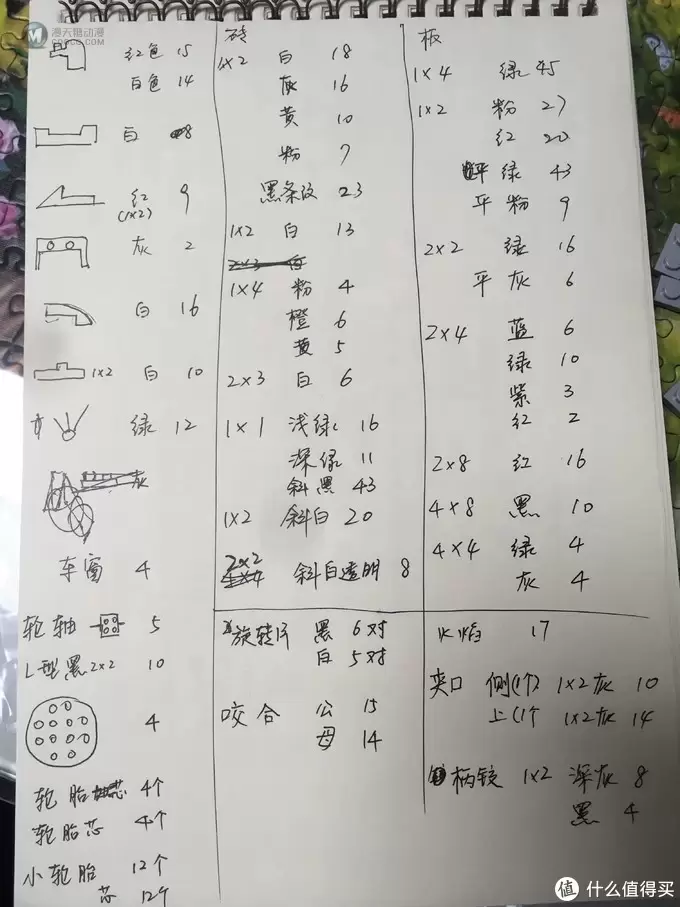 漫天糖动漫
红色 15
白色 14
白 8
红 9
(1×2)
灰 2
白 16
1×2 白 10
绿 12
灰
车窗 4
轮轴 5
L型黑2×2 10
4
轮胎 芯 4个
轮胎芯 4个
小轮胎 12个
芯 12个
砖
1×2 白 18
灰 16
黄 10
粉 7
黑条纹 23
1×2 白 13
2×3 白
1×4 粉 4
橙 6
黄 5
2×3 白 6
1×1 浅绿 16
深绿 11
斜黑 43
1×2 斜白 20
2×2 斜白透明 8
旋转片 黑 6对
白 5对
咬合 公 15
母 14
板
1×4 绿 45
1×2 粉 27
红 20
平绿 43
平粉 9
2×2 绿 16
平灰 6
2×4 蓝 6
绿 10
紫 3
红 2
2×8 红 16
4×8 黑 10
4×4 绿 4
灰 4
火焰 17
夹口 侧(1个) 1×2灰 10
上(1个 1×2灰 14
柄铰 1×2 深灰 8
黑 4
值 什么值得买